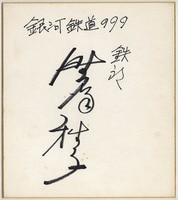 銀河鉄道999
鉄郎
雅子